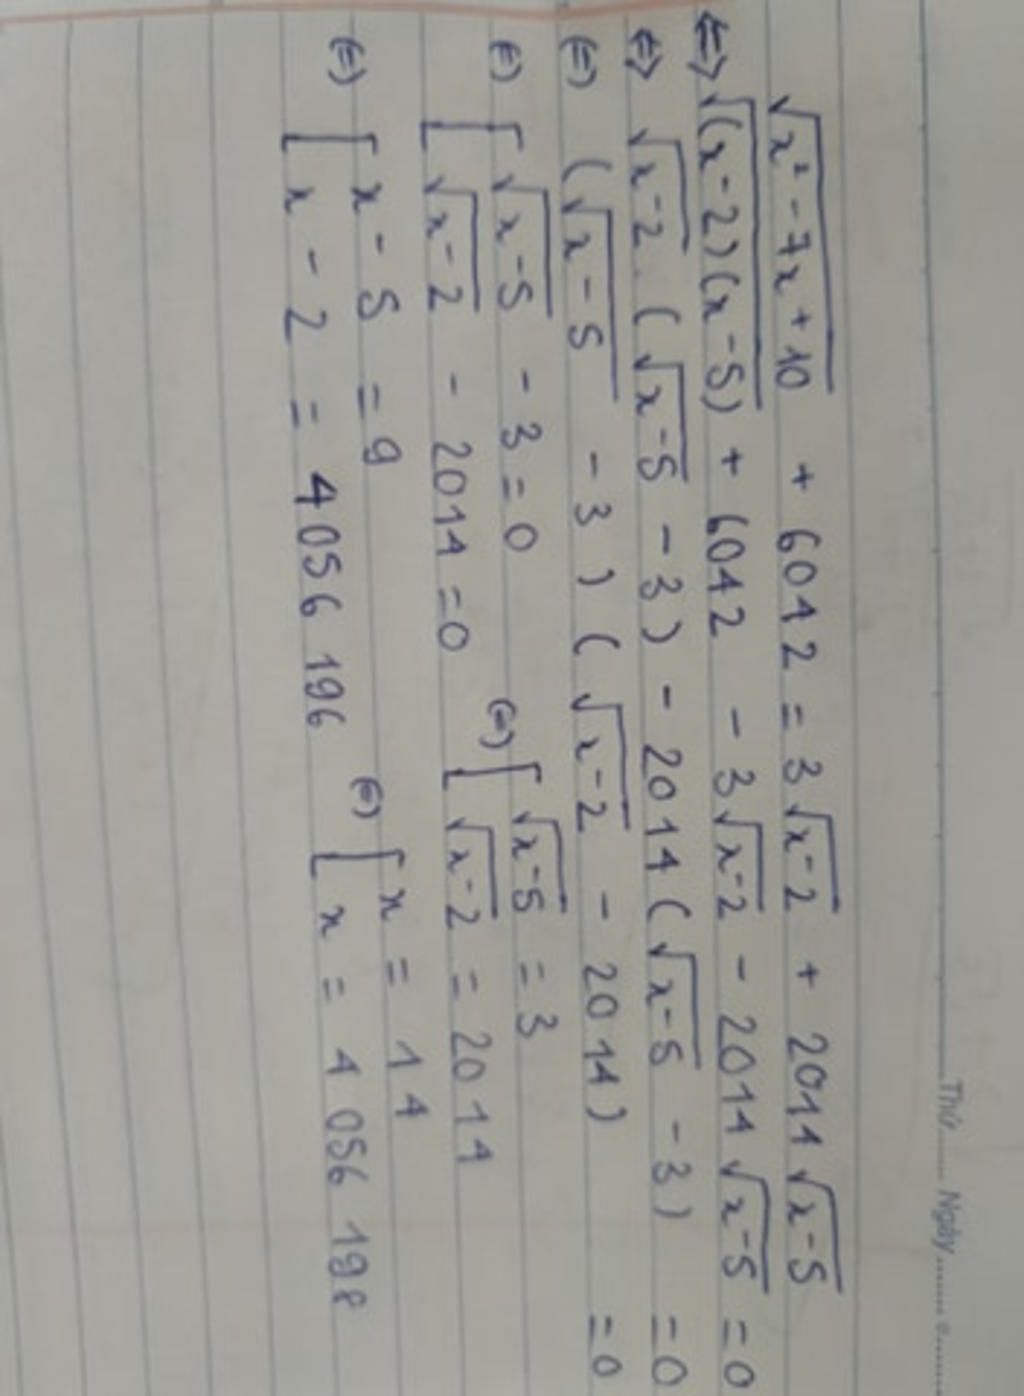 Thứ...... Ngày........
√(x² - 7x + 10) + 6042 = 3√(x-2) + 2014√(x-5)
⇔ √((x-2)(x-5)) + 6042 - 3√(x-2) - 2014√(x-5) = 0
⇔ √(x-2) . (√(x-5) - 3) - 2014(√(x-5) - 3) = 0
⇔ (√(x-5) - 3)(√(x-2) - 2014) = 0
⇔ [ √(x-5) - 3 = 0 ⇔ [ √(x-5) = 3
[ √(x-2) - 2014 = 0 [ √(x-2) = 2014
⇔ [ x - 5 = 9 ⇔ [ x = 14
[ x - 2 = 4056 196 [ x = 4 056 198